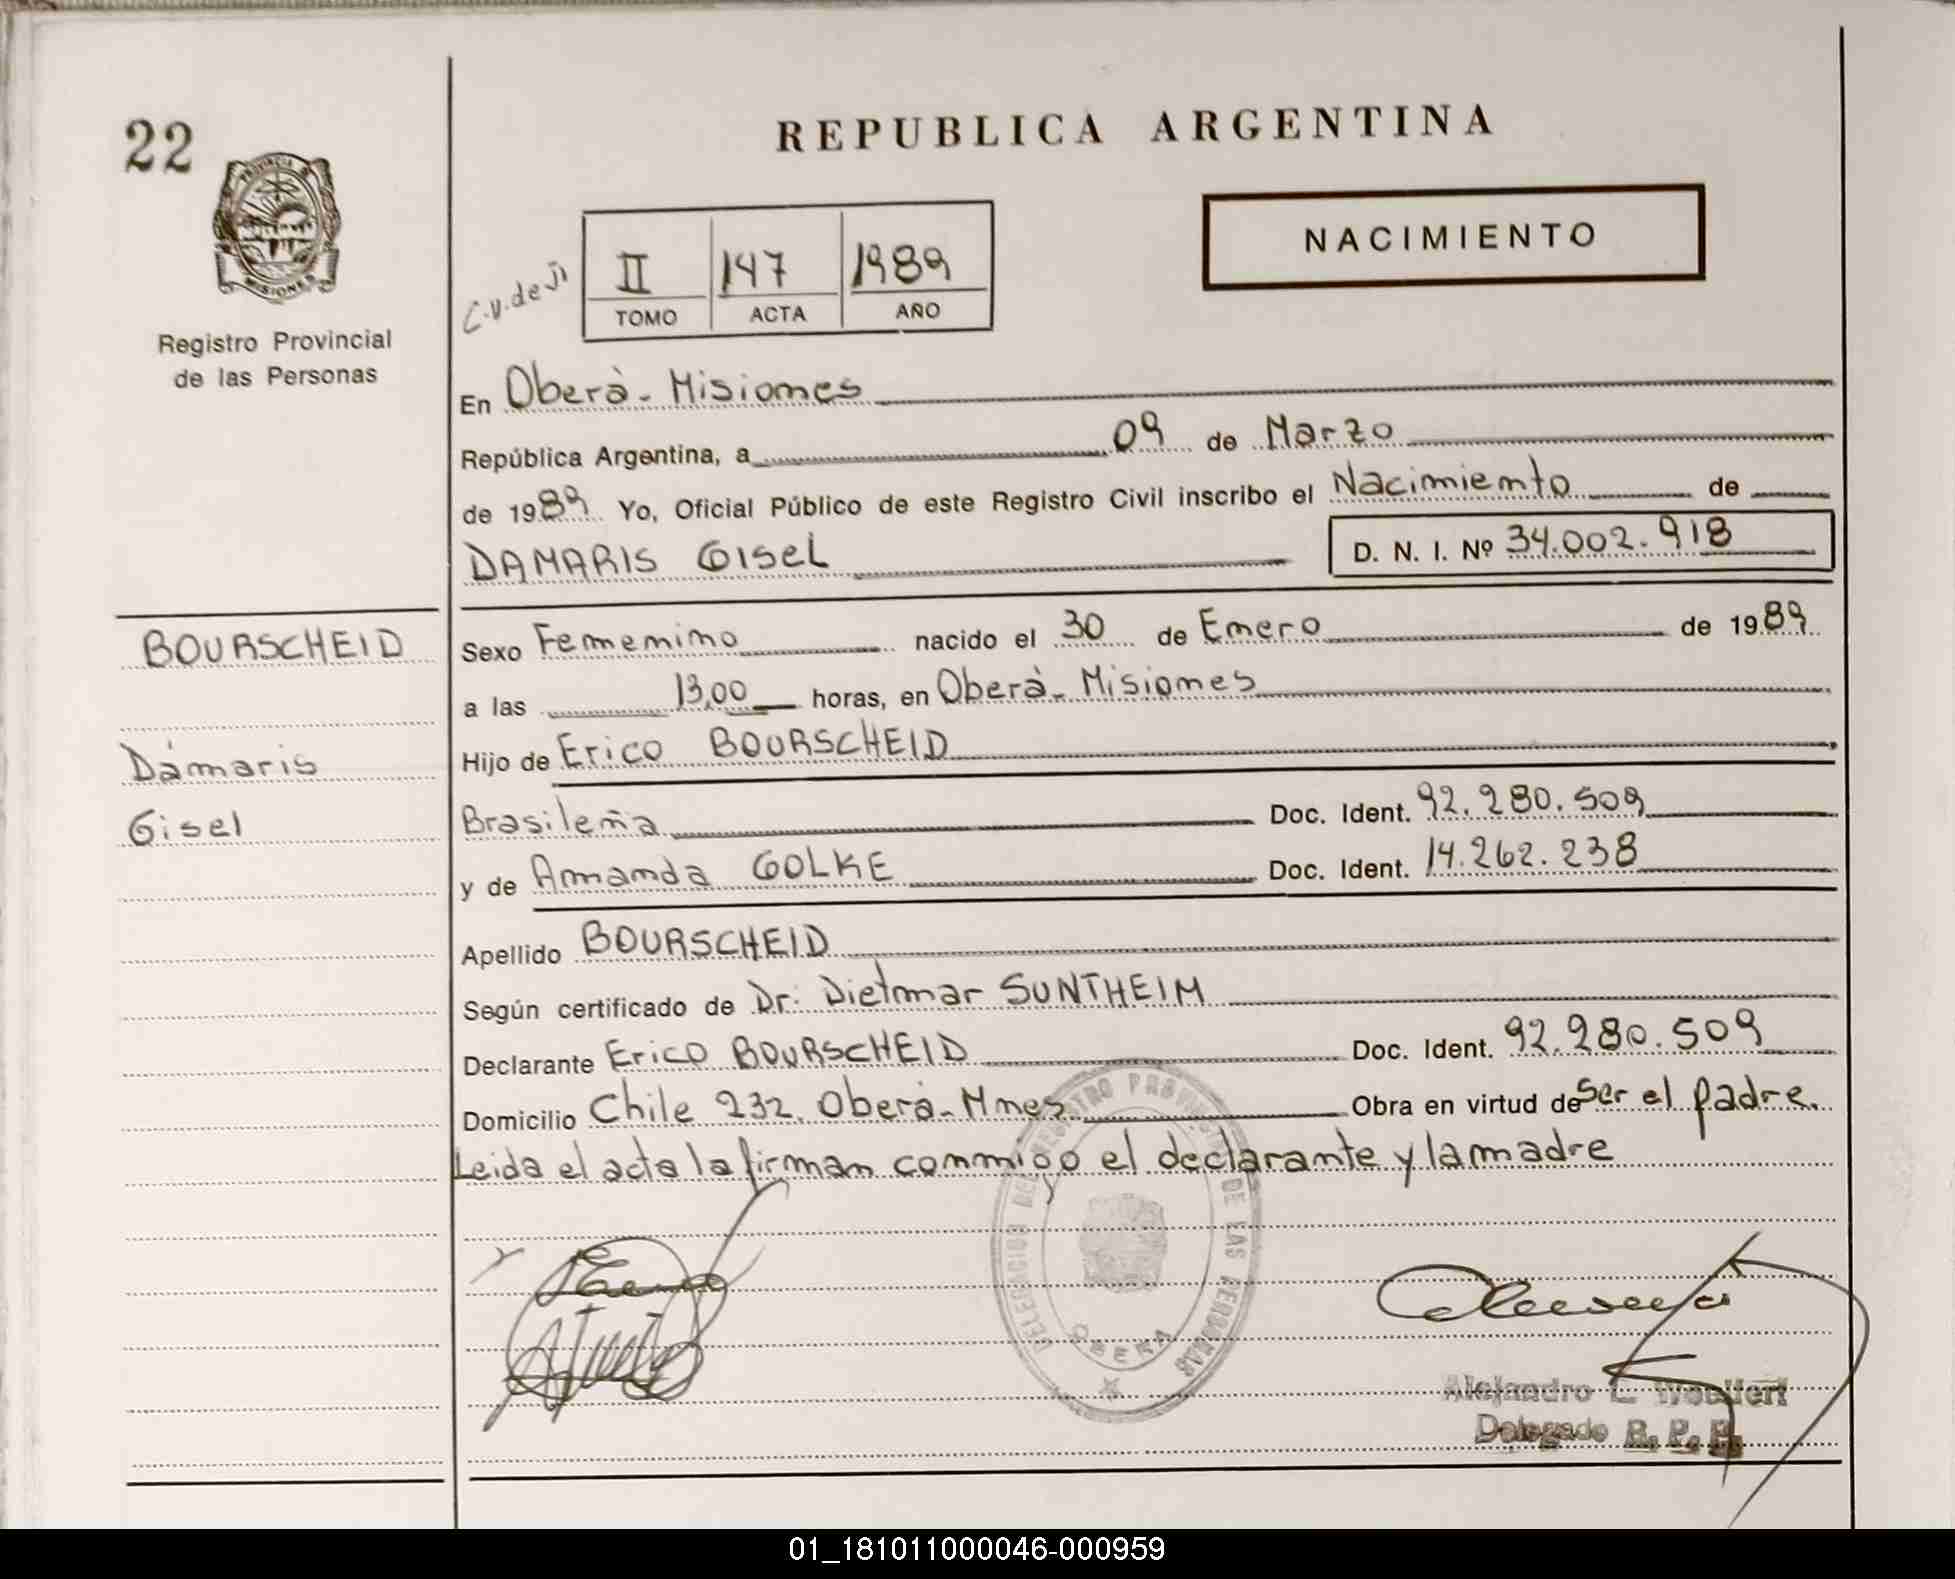 22
PROVINCIA DE
MISIONES
Registro Provincial
de las Personas
REPUBLICA ARGENTINA
NACIMIENTO
C.V. de J)
II 147 1989
TOMO ACTA AÑO
En Oberà - Misiones
República Argentina, a 09 de Marzo
de 1989 Yo, Oficial Público de este Registro Civil inscribo el Nacimiento de
DAMARIS GISEL D. N. I. Nº 34.002.918
BOURSCHEID
Dámaris
Gisel
Sexo Femenino nacido el 30 de Enero de 1989
a las 13,00 horas, en Oberà - Misiones
Hijo de Erico BOURSCHEID
Brasileña Doc. Ident. 92.280.509
y de Amanda GOLKE Doc. Ident. 14.262.238
Apellido BOURSCHEID
Según certificado de Dr: Dietmar SUNTHEIM
Declarante Erico BOURSCHEID Doc. Ident. 92.280.509
Domicilio Chile 232. Oberà - Mnes Obra en virtud de Ser el padre.
Leida el acta la firman conmigo el declarante y la madre
DELEGACION DEL REGISTRO PROVINCIAL DE LAS PERSONAS
OBERA
Alejandro L. Woelfert
Delegado R. P. P.
01_181011000046-000959